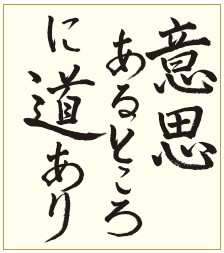 意思
あるところ
に道あり